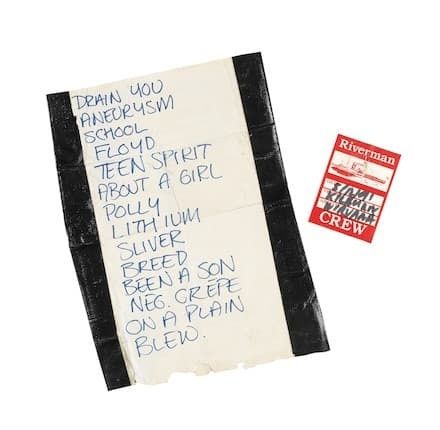 DRAIN YOU
ANEURYSM
SCHOOL
FLOYD
TEEN SPIRIT
ABOUT A GIRL
POLLY
LITHIUM
SLIVER
BREED
BEEN A SON
NEG. CRÊPE
ON A PLAIN
BLEW.
Riverman
CREW